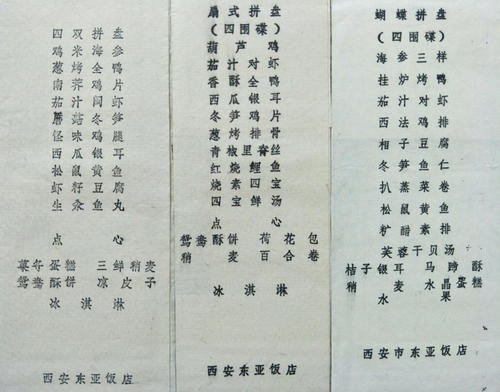 四双拼盘
鸡米海参
葱烤全鸭
南荠鸡片
茄汁闷虾
蘑菇冬笋
怪味鸡腿
西瓜银耳
松鼠黄鱼
虾籽豆腐
生汆鱼丸
点心
菓夆蛋糕 三鲜稍麦
鸳鸯酥饼 凉皮子
冰淇淋
西安东亚饭店
扇式拼盘
(四围碟)
葫芦鸡
茄汁对虾
香酥全鸭
西瓜银耳
冬笋鸡片
葱烤排骨
青椒里脊丝
红烧鲤鱼
烧素四宝
四宝鲜汤
点心
鸳鸯酥饼 荷花包
稍麦 百合卷
冰淇淋
西安东亚饭店
蝴蝶拼盘
(四围碟)
海参三样
挂炉烤鸭
茄汁对虾
西法鸡排
相子豆腐
冬笋鱼仁
扒蒸菜卷
松鼠黄鱼
醋素排
芙蓉干贝汤
桔子银耳 马蹄酥
稍麦 水晶蛋糕
水果
西安市东亚饭店